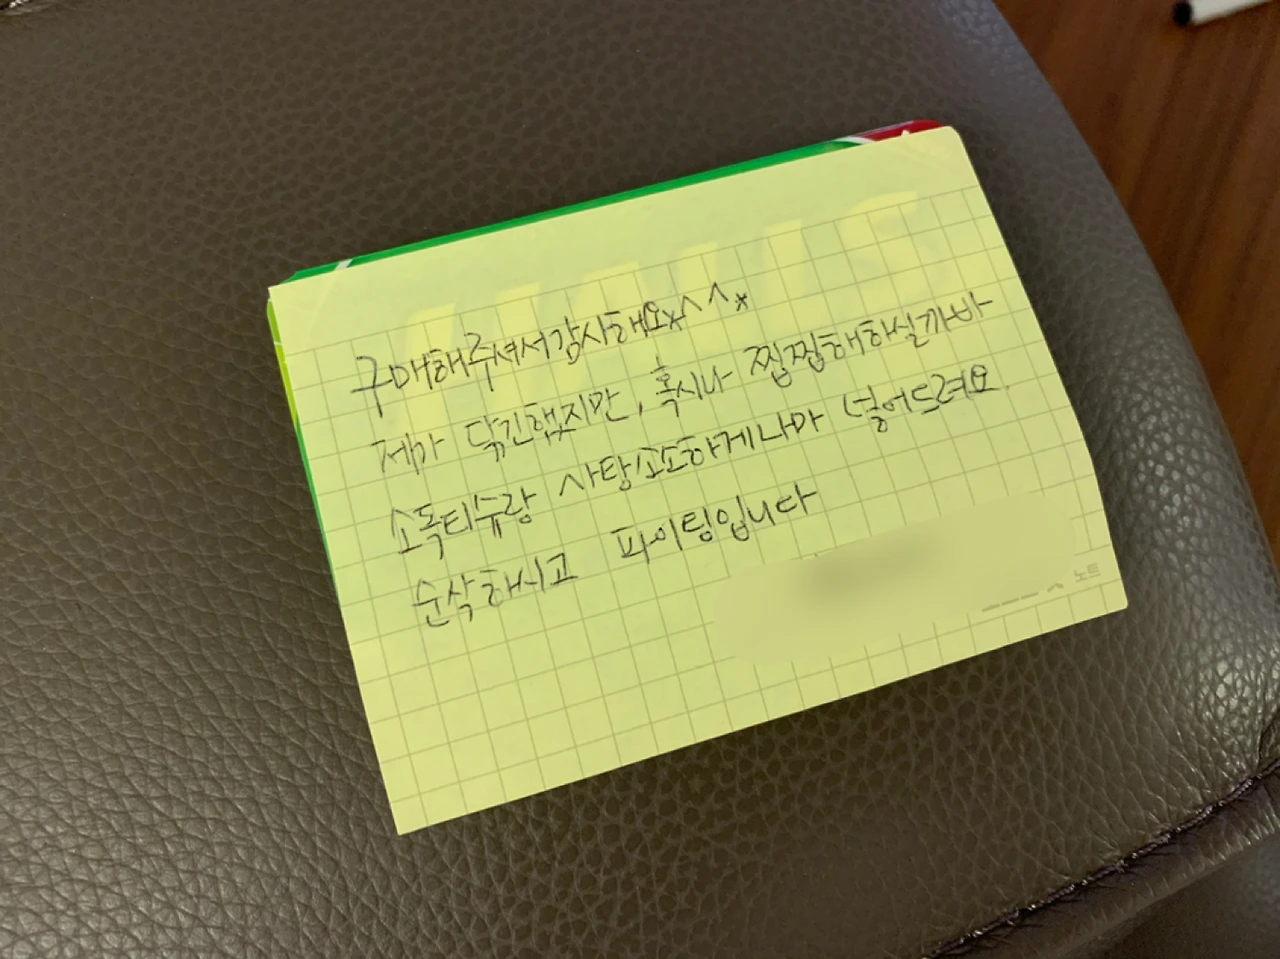 구매해주셔서감사해요*^^*
제가 닦긴했지만, 혹시나 찝찝해하실까바
소독티슈랑 사탕소소하게나마 넣어드려요.
순삭하시고 파이팅입니다
노트